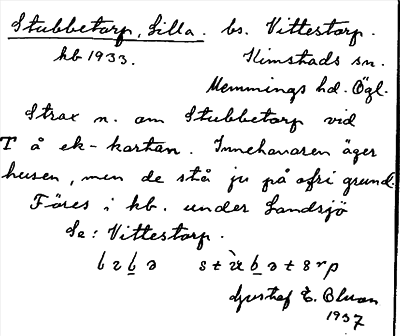 Stubbetorp, Lilla. bs. Vittestorp.
kb 1933. Kimstads sn.
Memmings hd. Ögl.
Strax n. om Stubbetorp vid
T å ek-kartan. Innehavaren äger
husen, men de stå ju på ofri grund.
Föres i kb. under Landsjö
Se: Vittestorp.
Gustaf E. Bluan
1937